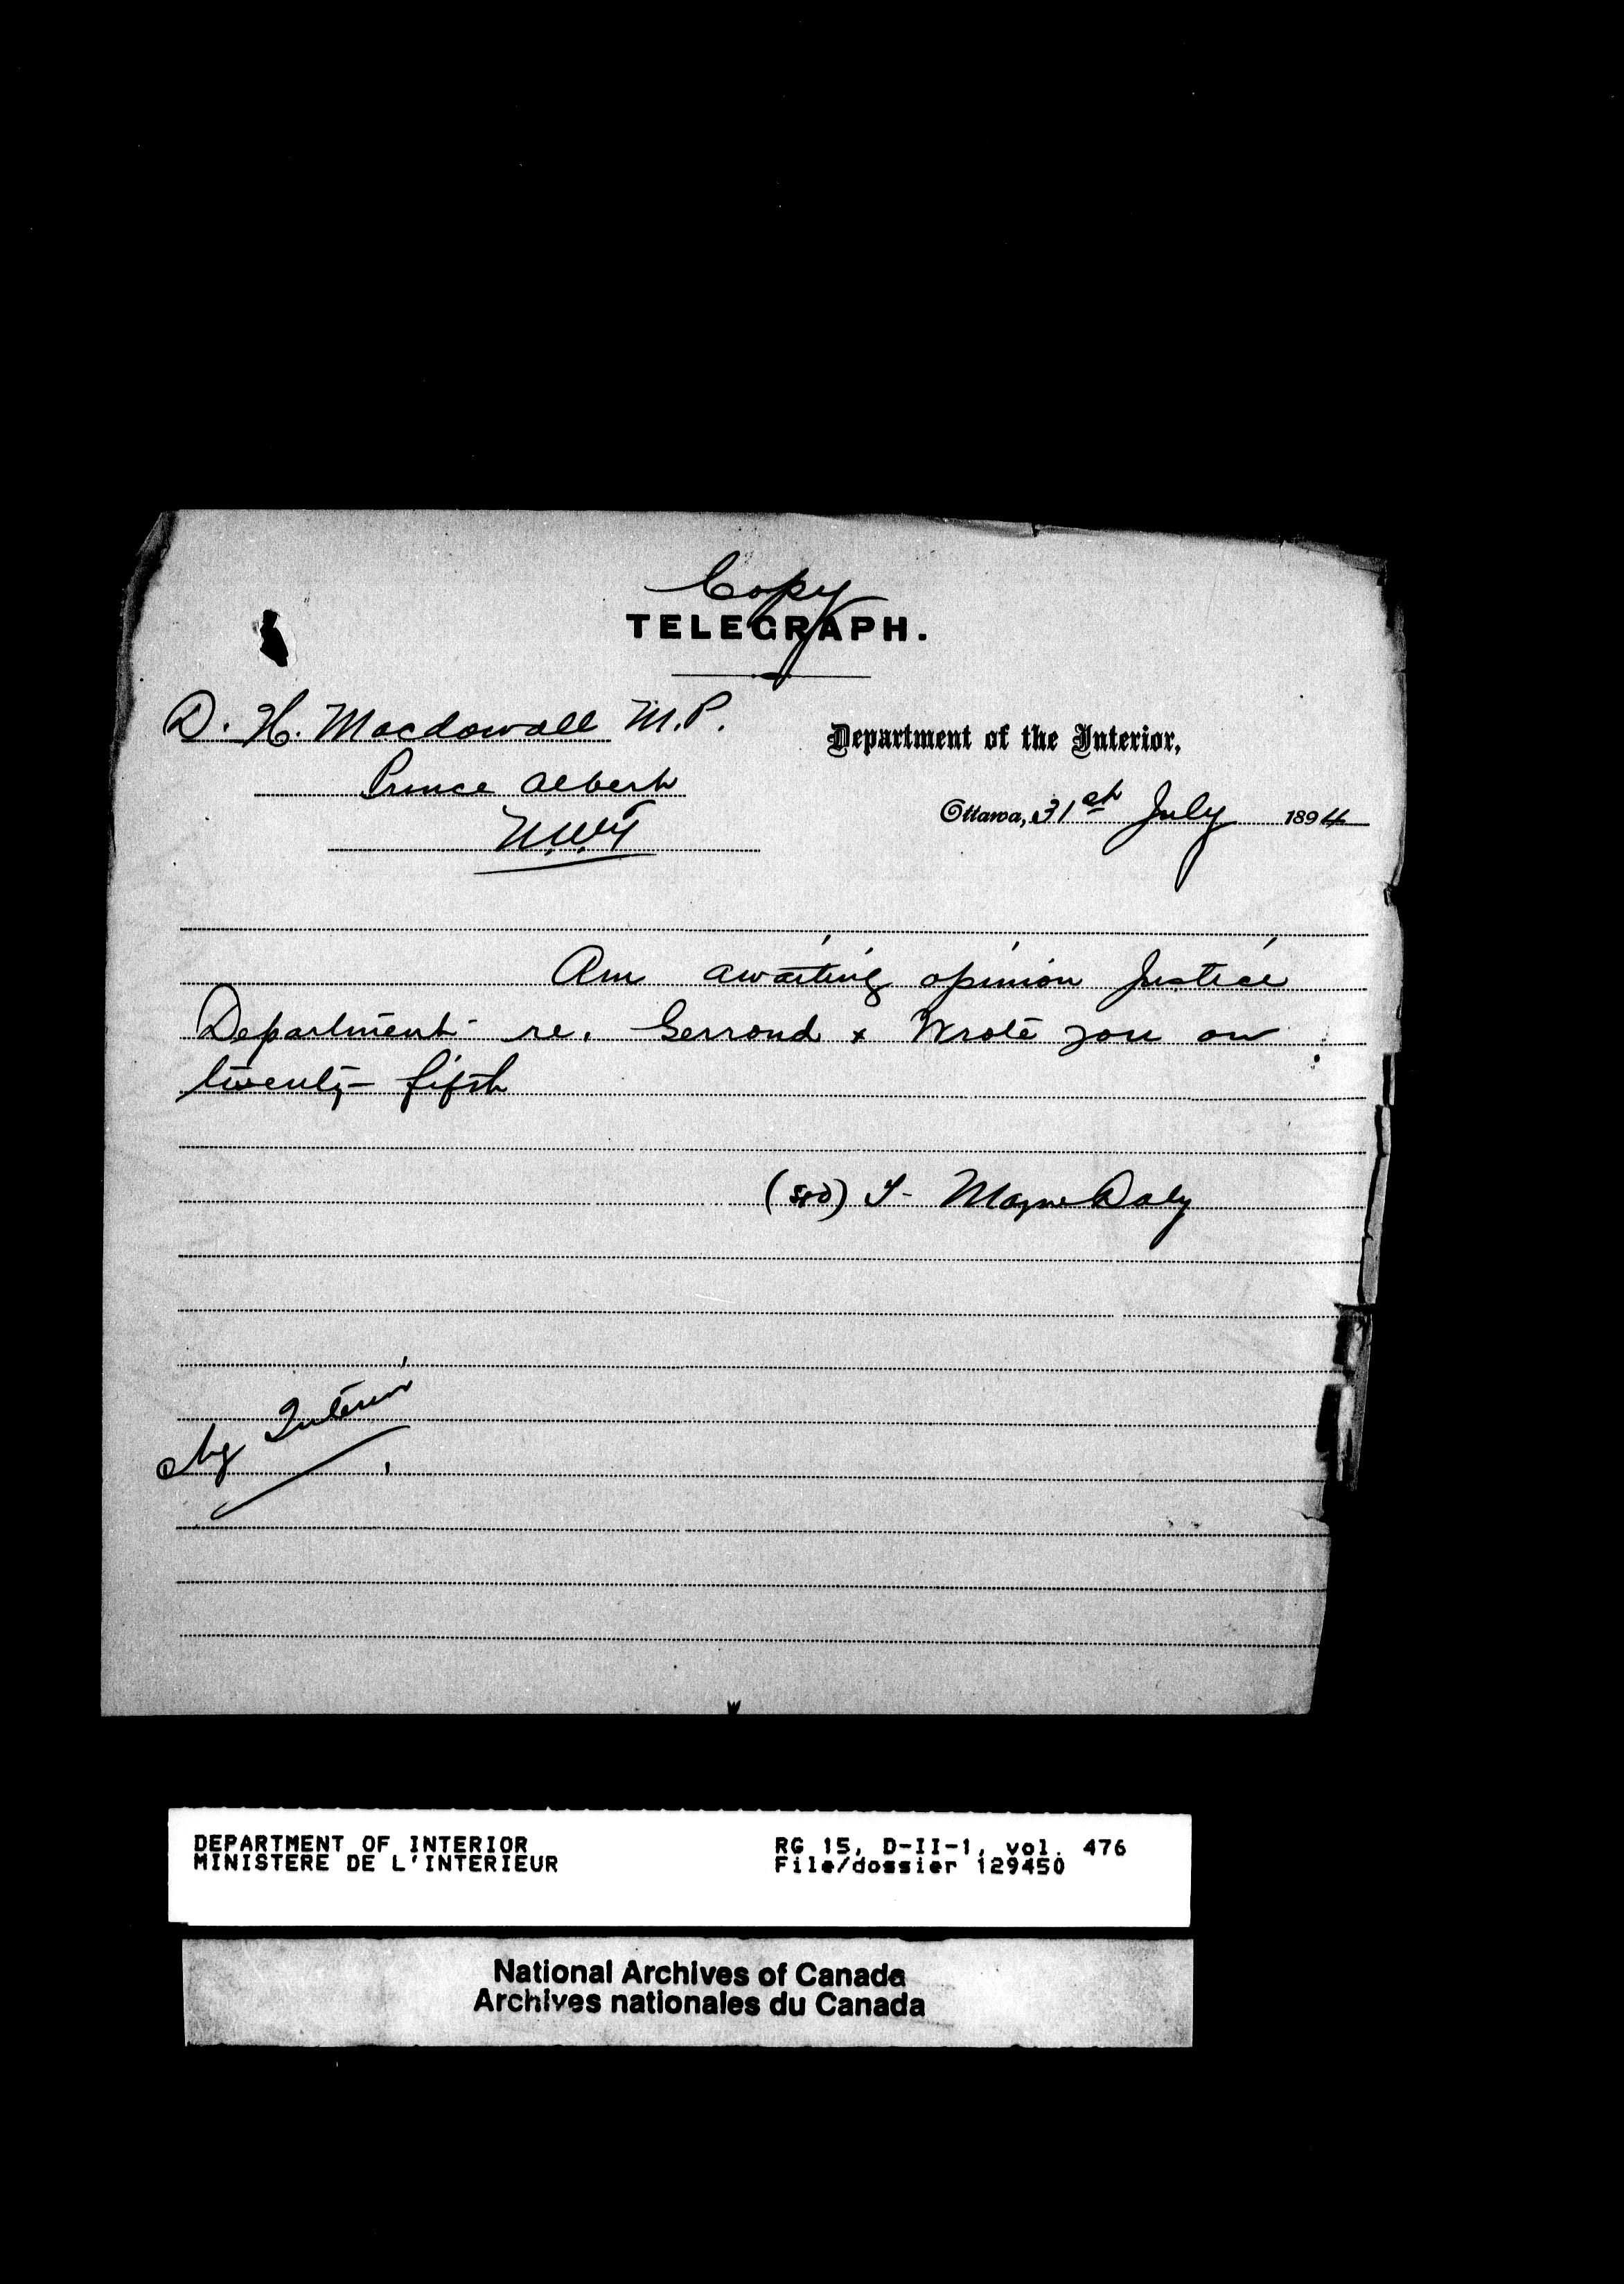 Copy
TELEGRAPH.
D. H. Macdowall M.P.
Prince Albert
N.W.T
Department of the Interior,
Ottawa, 31st July 1894
Am awaiting opinion Justice
Department re. Gerrond x Wrote you on
twenty-fifth
(sgd) T- Mayne Daly
Chg Interior
DEPARTMENT OF INTERIOR
MINISTERE DE L'INTERIEUR
RG 15, D-II-1, vol. 476
File/dossier 129450
National Archives of Canada
Archives nationales du Canada